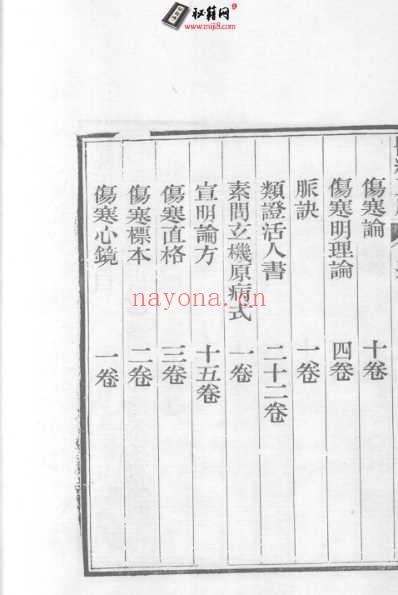 秘籍网
www.miji8.com
傷寒論 十卷
傷寒明理論 四卷
脈訣 一卷
類證活人書 二十二卷
素問玄機原病式 一卷
宣明論方 十五卷
傷寒直格 三卷
傷寒標本 二卷
傷寒心鏡 一卷
nayona.cn